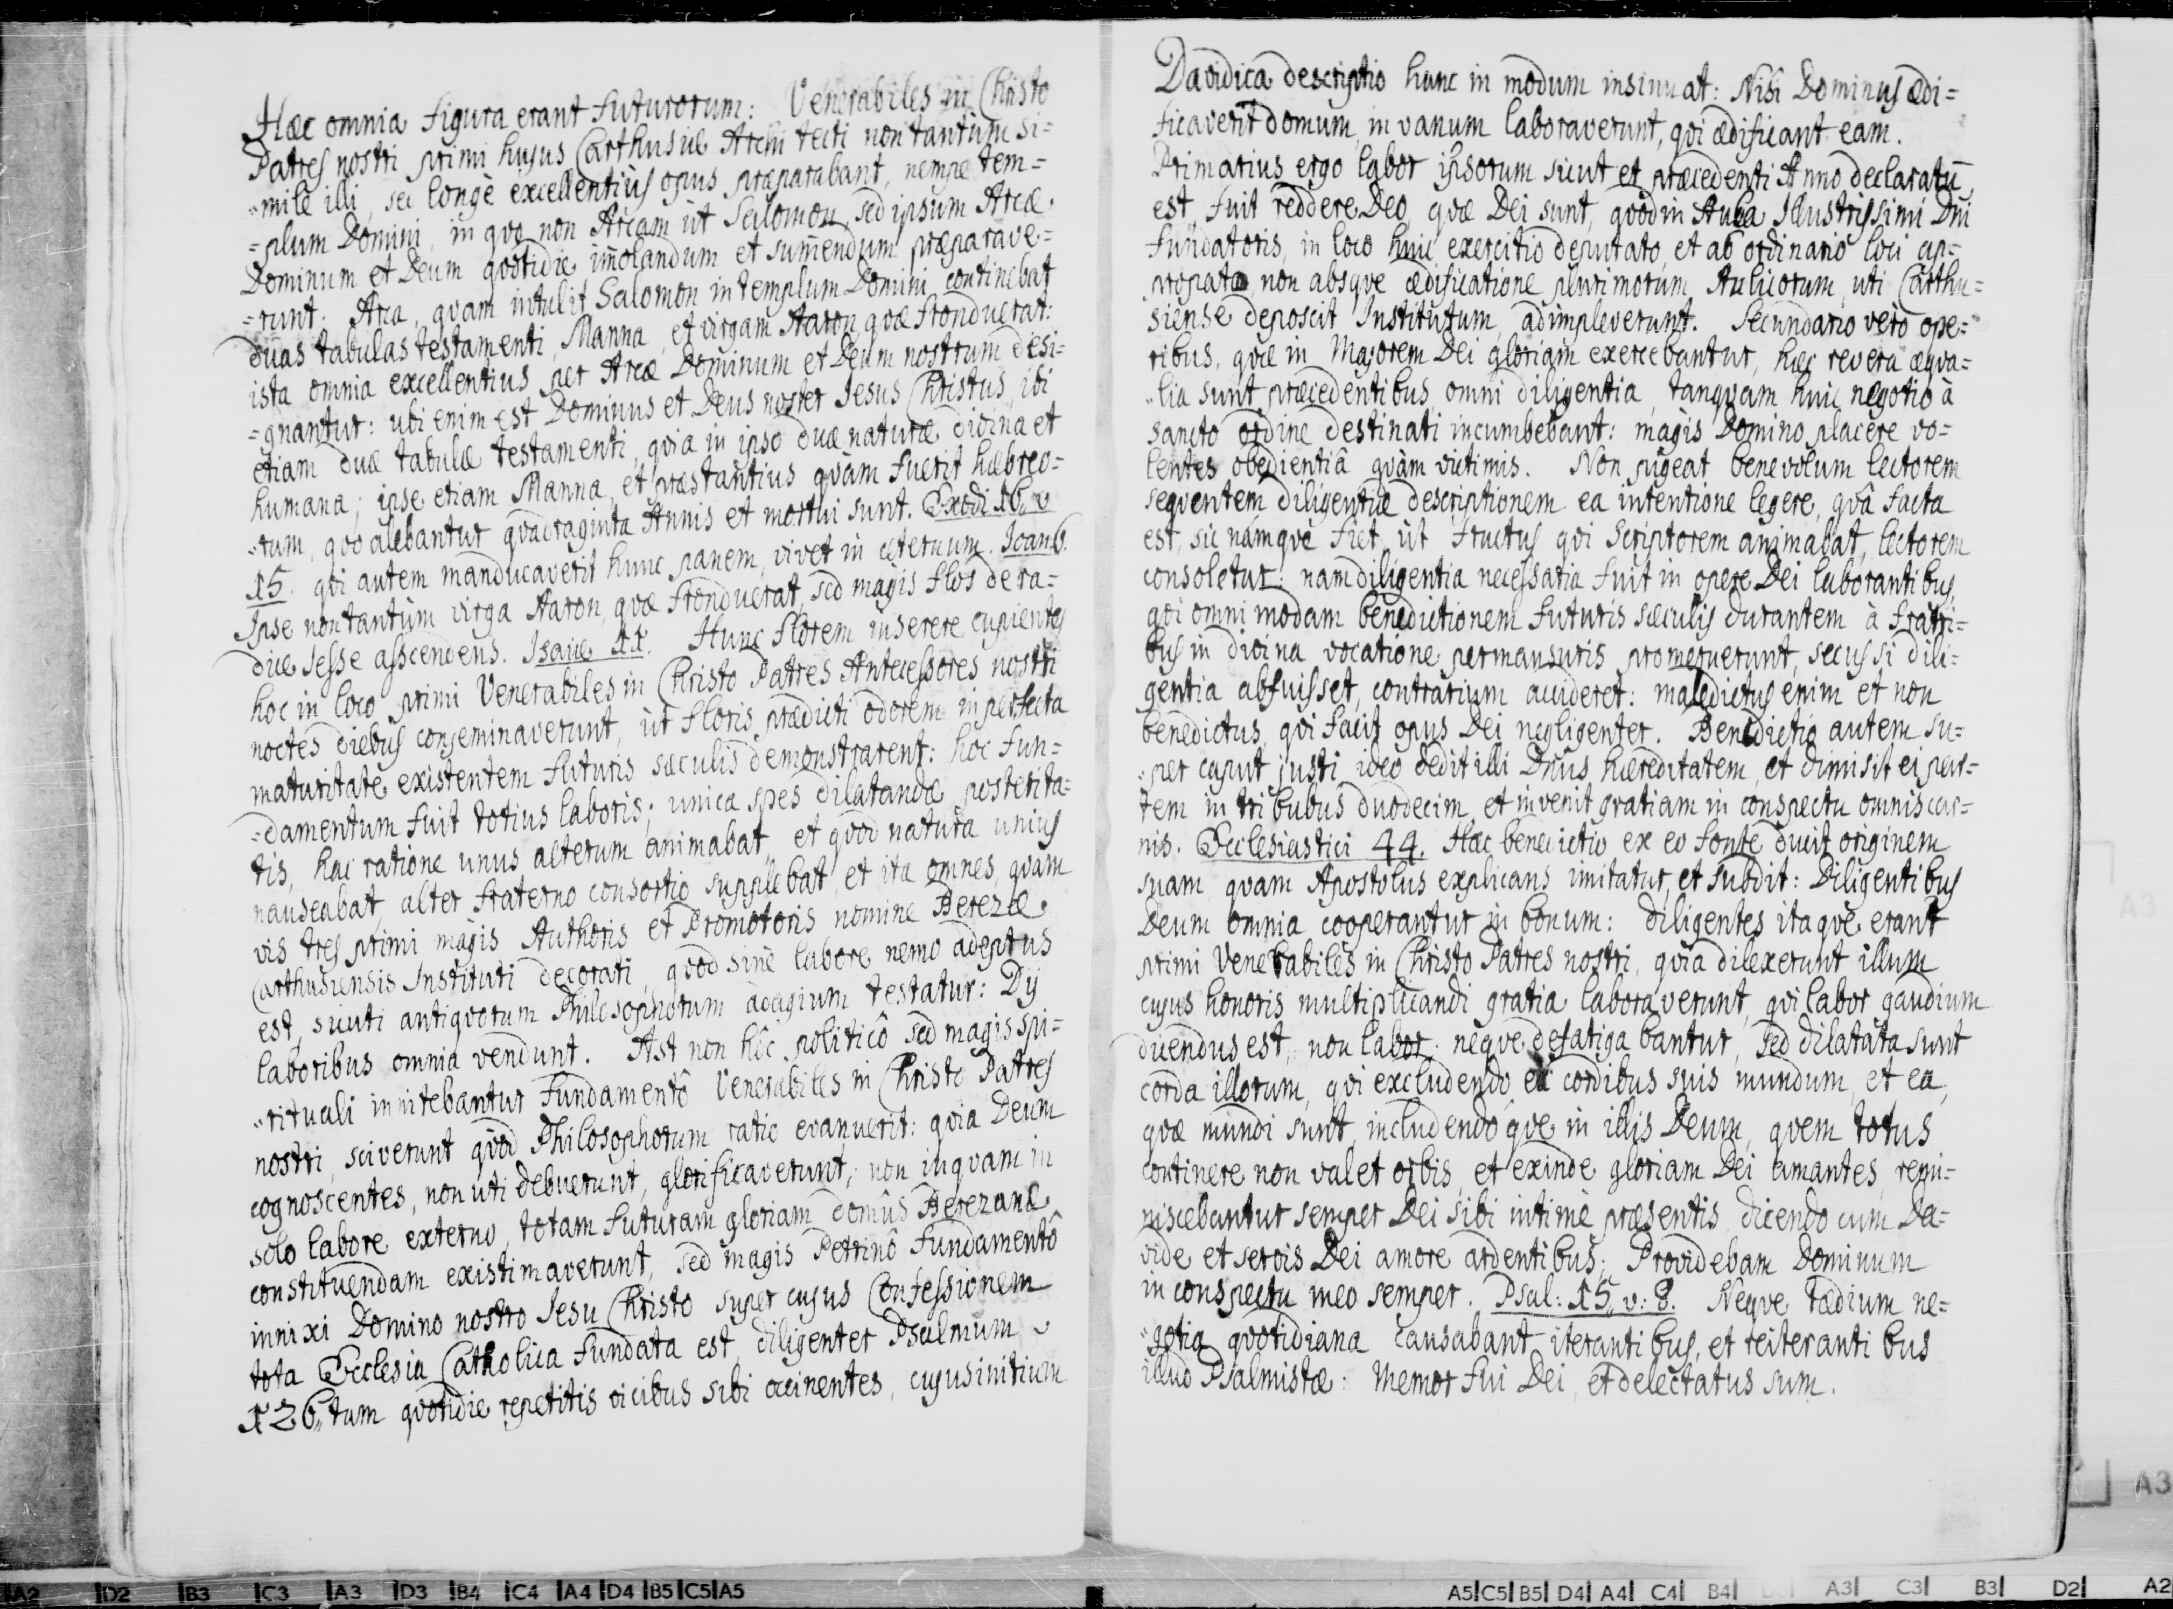 Hæc omnia figura erant futurorum: Venerabiles in Christo
Patres nostri primi hujus Carthusiæ Architecti non tantum si=
=mile illi, sec longè excellentiùs opus præparabant, nempe tem=
=plum Domini, in qvo non Arcam ùt Salomon, sed ipsum Arcæ
Dominum et Deum qvotidie im̃olandum et sumendum præparave=
=runt. Arca, qvam intulit Salomon in templum Domini, continebat
duas tabulas testamenti, Manna, et virgam Aaron, qvæ fronduerat:
ista omnia excellentius per Arcæ Dominum et Deum nostrum desi=
=gnantur: ubi enim est Dominus et Deus noster Jesus Christus, ibi
etiam duæ tabulæ testamenti, qvia in ipso duæ naturæ divina et
humana; ipse etiam Manna, et præstantius qvàm fuerit hæbreo=
=rum, qvo alebantur qvadraginta Annis et mortui sunt. Exodi 16. v
15. qvi autem manducaverit hunc panem, vivet in æternum. Joan 6.
Ipse non tantùm virga Aaron, qvæ fronduerat, sed magis flos de ra=
dice Jesse asscendens. Isaiæ 11. Hunc florem inserere cupientes
hoc in loco primi Venerabiles in Christo Patres Antecessores nostri
noctes diebus conseminaverunt, ùt floris prædicti odorem in perfecta
maturitate existentem futuris sæculis demonstrarent: hoc fun=
=damentum fuit totius laboris; unica spes dilatandæ posterita=
tis, hac ratione unus alterum animabat, et qvod natura unius
nauseabat, alter fraterno consortio supplebat, et ita omnes, qvam
vis tres primi magis Authoris et Promotoris nomine Berezæ
Carthusiensis Instituti decorati, qvod sinè labore nemo adeptus
est, sicuti antiqvorum Philosophorum adagium testatur: Dij
laboribus omnia vendunt. Ast non hôc politicô sed magis spi=
=rituali innitebantur fundamentô Venerabiles in Christo Patres
nostri, sciverunt qvòd Philosophorum ratio evanuerit: qvia Deum
cognoscentes, non uti debuerunt, glorificaverunt; non inqvam in
solo labore externo, totam futuram gloriam domûs Berezanæ
constituendam existimaverunt, sed magis Petrinô fundamentô
innixi Domino nostro Jesu Christo super cujus Confessionem
tota Ecclesia Catholica fundata est, diligenter Psalmum
126,,tum qvotidie repetitis vicibus sibi occinentes, cujus initium
Davidica descriptio hunc in modum insinuat: Nisi Dominus ædi=
ficaverit domum, in vanum laboraverunt, qvi ædificant eam.
Primarius ergo labor ipsorum sicut et præcedenti Anno declaratū
est, fuit reddere Deo, qvæ Dei sunt, qvòd in Aula Illustrissimi Dñi
fundatoris, in loco huic exercitio deputato, et ab ordinario loci ap=
probato non absqve ædificatione plurimorum Aulicorum, uti Carthu=
siense deposcit Institutum, adimpleverunt. Secundario verò ope=
ribus, qvæ in Majorem Dei gloriam exercebantur, hæc revera æqva=
=lia sunt præcedentibus omni diligentia, tanqvam huic negotio à
sancto ordine destinati incumbebant: magis Domino placere vo=
lentes obedientiâ qvàm victimis. Non pigeat benevolum lectorem
seqventem diligentiæ descriptionem ea intentione legere, qvâ facta
est, sic namqve fiet, ùt fructus qvi Scriptorem animabat, lectorem
consoletur: nam diligentia necessaria fuit in opere Dei laborantibus,
qvi omnimodam benedictionem futuris sæculis durantem à fratri=
bus in divina vocatione permansuris promeruerunt, secus si dili=
gentia abfuisset, contrarium accideret: maledictus enim et non
benedictus, qvi facit opus Dei negligenter. Benedictio autem su=
=per caput justi, ideo dedit illi Dñus hæreditatem, et divisit ei par=
tem in tribubus duodecim, et invenit gratiam in conspectu omnis car=
nis. Ecclesiastici 44. Hæc benedictio ex eo fonte ducit originem
suam qvam Apostolus explicans imitatur, et subdit: Diligentibus
Deum omnia cooperantur in bonum: diligentes itaqvè erant
primi Venerabiles in Christo Patres nostri, qvia dilexerunt illum
cujus honoris multiplicandi gratia laboraverunt, qvi labor gaudium
ducendus est, non labor: neqve defatigabantur, sed dilatata sunt
corda illorum, qvi excludendo ex cordibus suis mundum, et ea,
qvæ mundi sunt, includendoqve in illis Deum, qvem totus
continere non valet orbis, et exinde gloriam Dei amantes, remi=
niscebantur semper Dei sibi intimè præsentis, dicendo cum Da=
vide et servis Dei amore ardentibus; Providebam Dominum
in conspectu meo semper. Psal: 15,, v: 8. Neqve tædium ne=
=gotia qvotidiana causabant iterantibus, et reiterantibus
illud Psalmistæ: Memor fui Dei, et delectatus sum.
A2 D2 B3 C3 A3 D3 B4 C4 A4 D4 B5 C5 A5
A5 C5 B5 D4 A4 C4 B4 A3 C3 B3 D2 A2
A3
A3